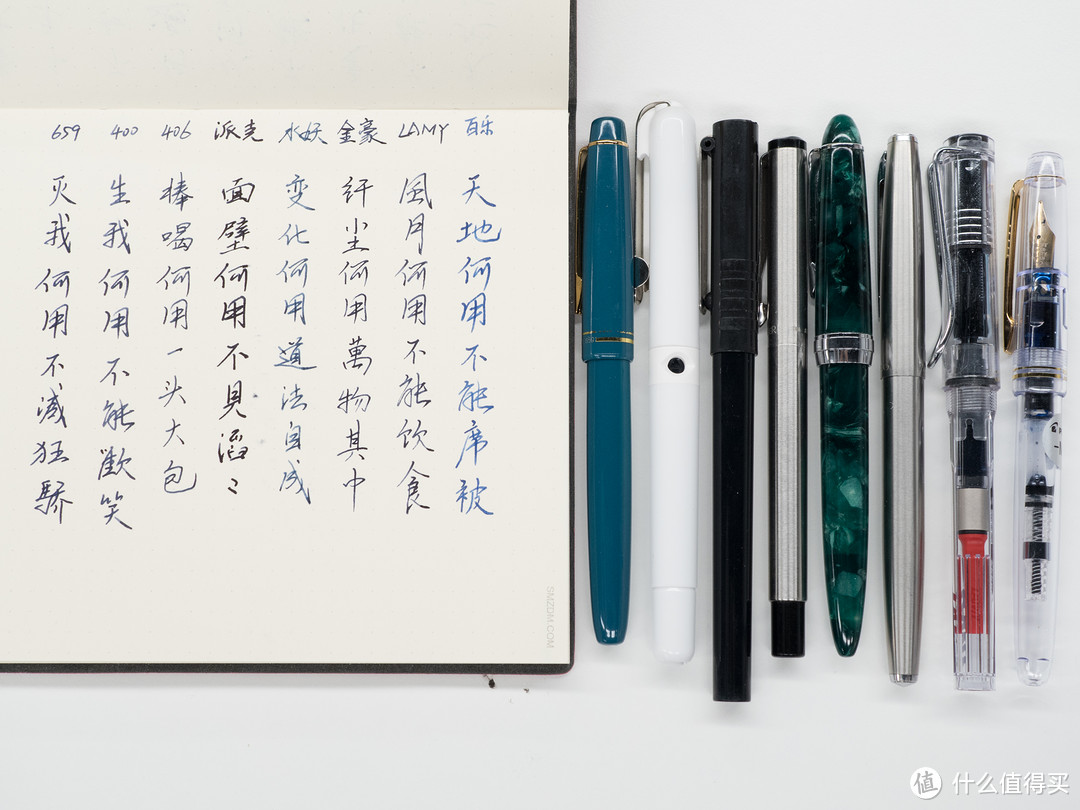 百乐
天地何用不能席被
LAMY
風月何用不能饮食
金豪
纤尘何用萬物其中
水妖
变化何用道法自成
派克
面壁何用不見滔〻
406
棒喝何用一头大包
400
生我何用不能歡笑
659
灭我何用不減狂驕
SMZDM.COM
值 什么值得买